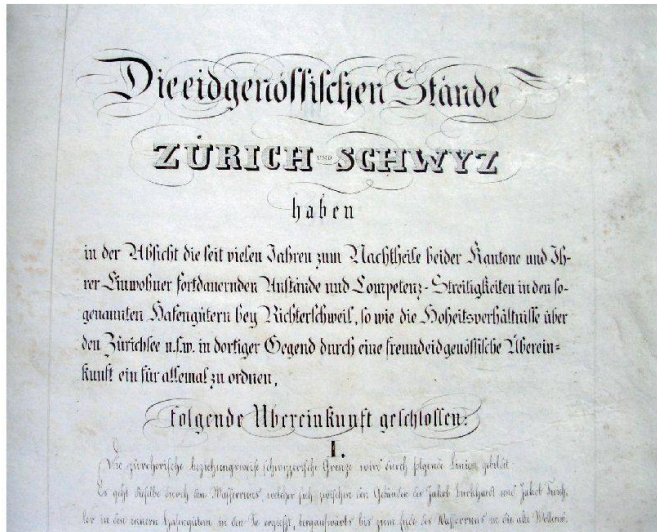 Die eidgenössischen Stände
ZÜRICH UND SCHWYZ
haben
in der Absicht die seit vielen Jahren zum Nachtheile beider Kantone und Ih-
rer Einwohner fortdauernden Anstände und Competenz-Streitigkeiten in den so-
genannten Hafengütern bey Richterschweil, so wie die Hoheitsverhältnisse über
den Zürichsee u.s.w. in dortiger Gegend durch eine freundeidgenössische Überein=
kunft ein für allemal zu ordnen,
folgende Übereinkunft geschlossen:
I.
Die zürcherische beziehungsweise schwyzerische Grenze wird durch folgende Linien gebildet
Es geht dieselbe durch den Wasserruns, welcher sich zwischen den Gebäuden des Jakob Burkhardt und Jakob
der in den innern Hafengütern in den See ergießt, hinaufwärts bis zum des Wasserruns in die alte